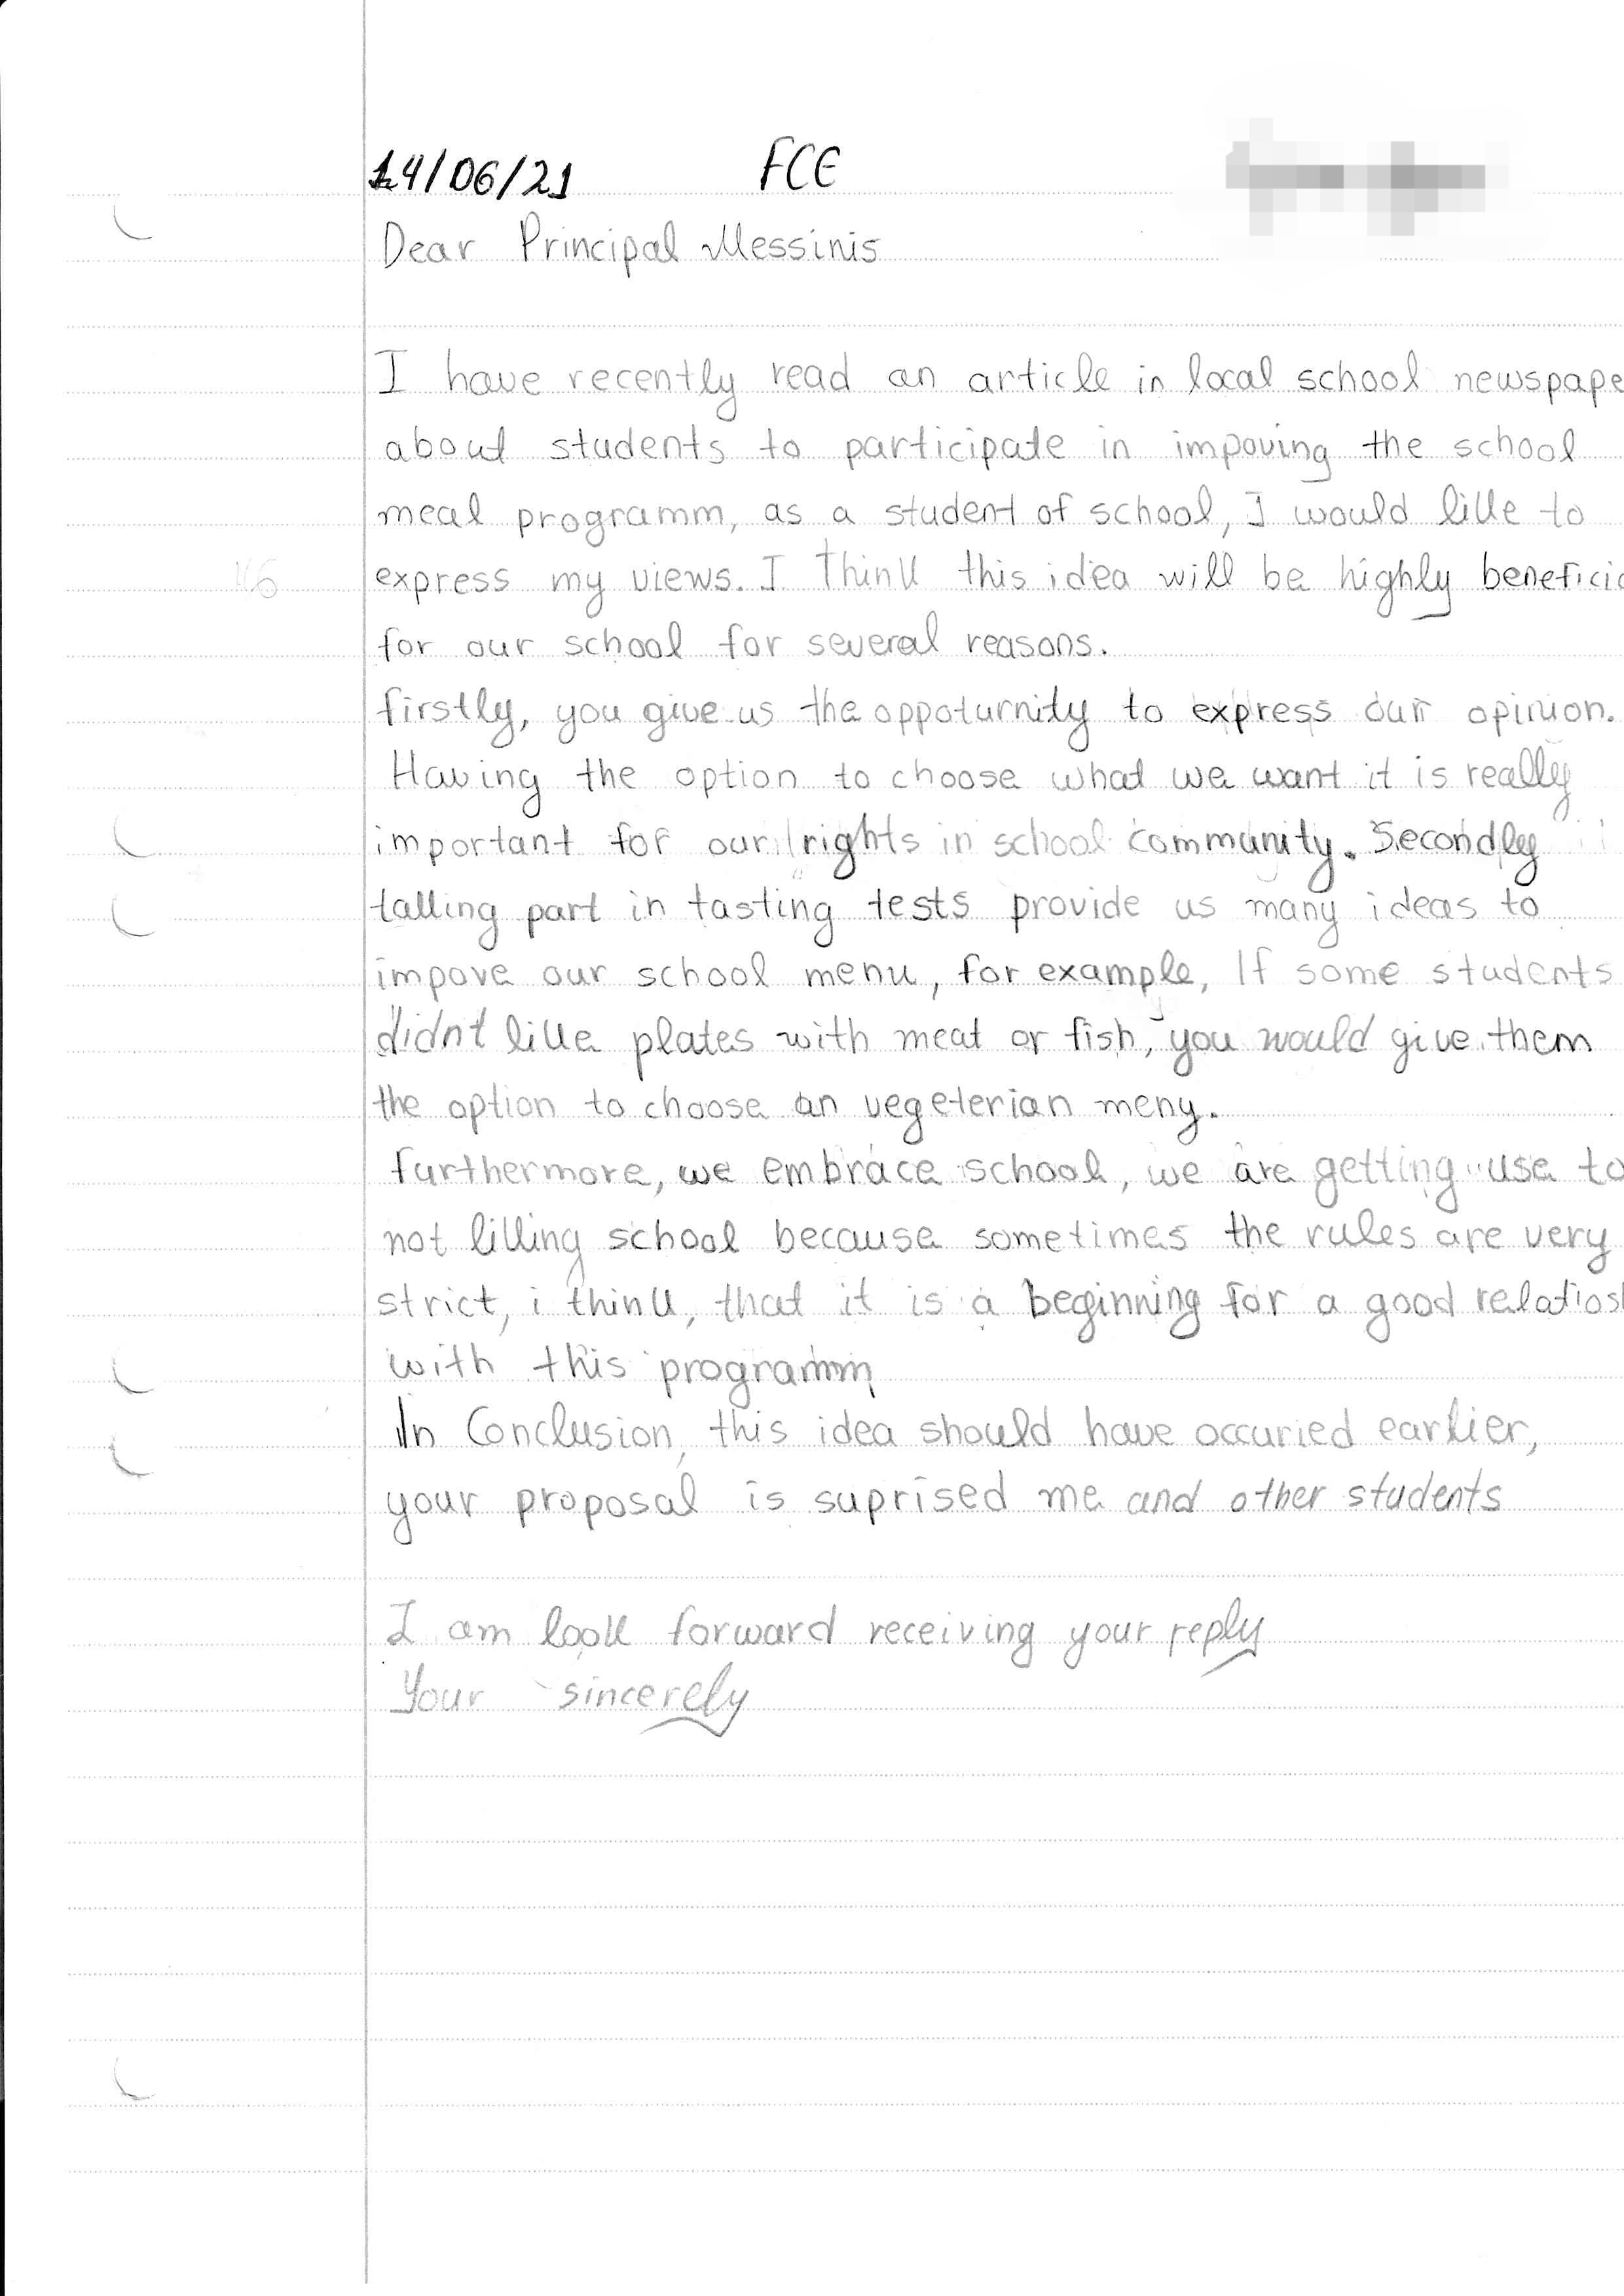 14/06/21 FCE
Dear Principal Messinis
I have recently read an article in local school newspape
about students to participate in impoving the school
meal programm, as a student of school, I would like to
express my views. I think this idea will be highly beneficia
for our school for several reasons.
firstly, you give us the oppoturnity to express our opinion.
Having the option to choose what we want it is really
important for our rights in school community. Secondly
taking part in tasting tests provide us many ideas to
impove our school menu, for example, If some students
didnt like plates with meat or fish, you would give them
the option to choose an vegeterian meny.
furthermore, we embrace school, we are getting use to
not liking school because sometimes the rules are very
strict, i think, that it is a beginning for a good relatios
with this programm
In Conclusion, this idea should have occuried earlier,
your proposal is suprised me and other students
I am look forward receiving your reply
Your sincerely